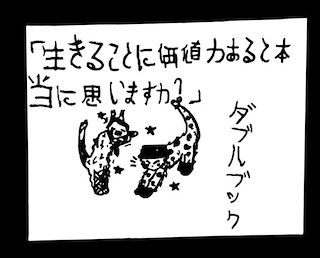 「生きることに価値力あると本
当に思いますか?」
ダブルブック